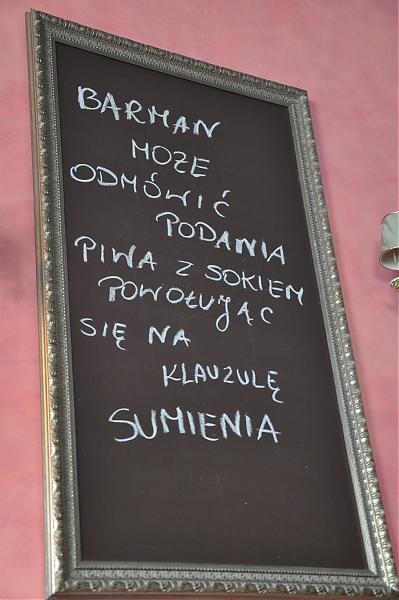 BARMAN
MOŻE
ODMÓWIĆ
PODANIA
PIWA Z SOKIEM
POWOŁUJĄC
SIĘ NA
KLAUZULĘ
SUMIENIA